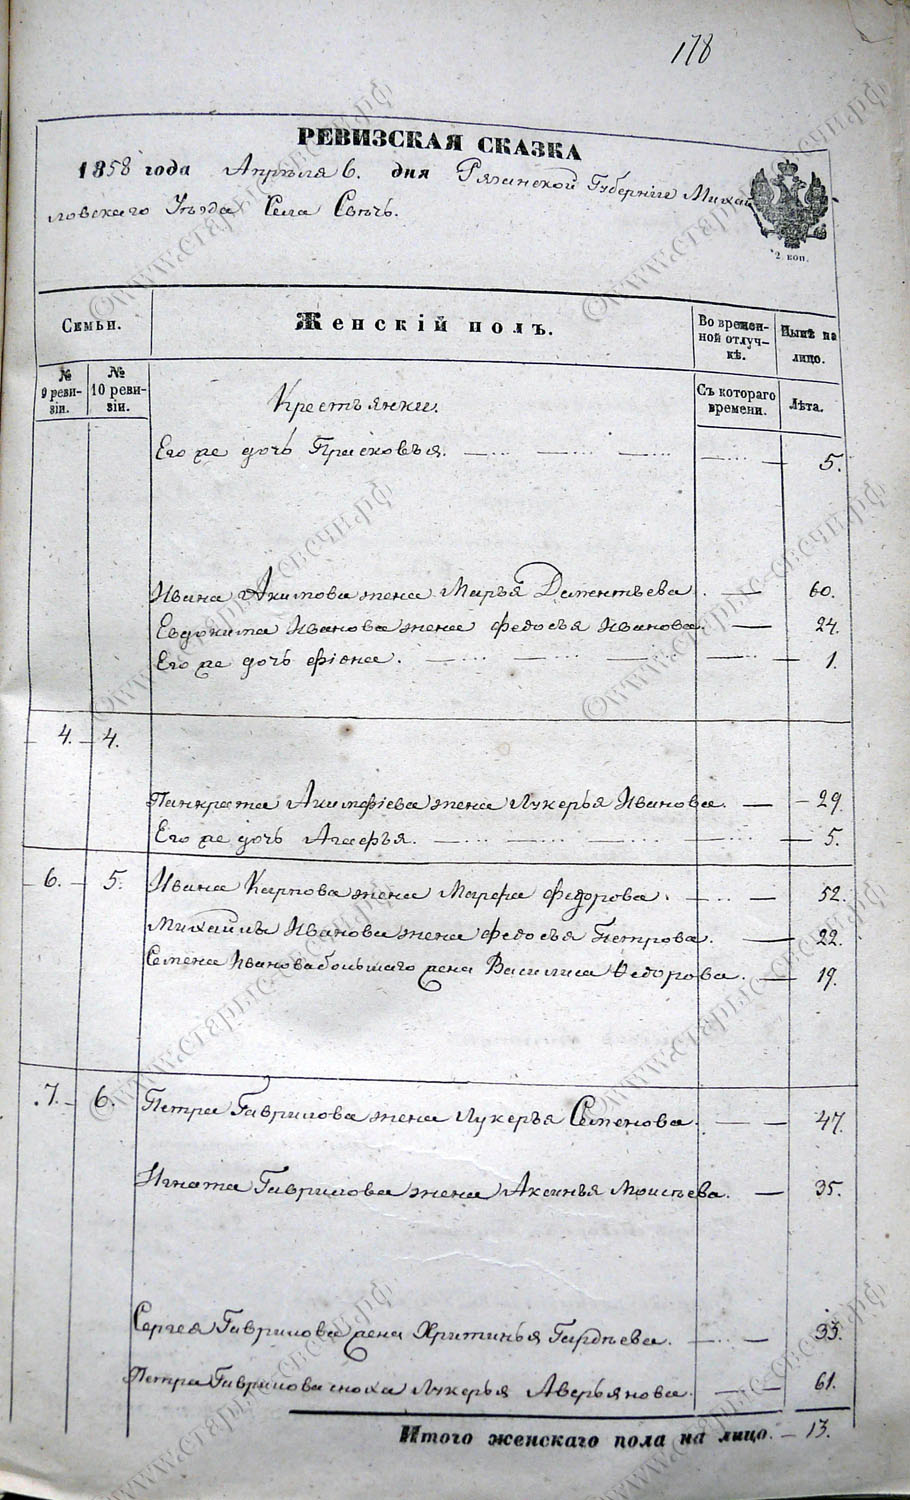 178
РЕВИЗСКАЯ СКАЗКА
1858 года Апрѣля 6. дня Рязанской Губерніи Михай
ловскаго Уѣзда Села Свѣчь.
2 коп.
Семьи.
Женскій полъ.
Во времен-
ной отлуч-
кѣ.
Нынѣ на
лицо.
№
9 реви-
зіи.
№
10 реви-
зіи.
Крестьянки.
Съ котораго
времени.
Лѣта.
Его же дочь Прасковья. 5.
Ивана Акимова жена Марья Дементьева. 60.
Евдокима Иванова жена Федосья Иванова. 24.
Его же дочь Фіона. 1.
4. 4.
Панкрата Акимфіева жена Лукерья Иванова. 29.
Его же дочь Агафья. 5.
6. 5. Ивана Карпова жена Марфа Федорова. 52.
Михайлы Иванова жена Федосья Петрова. 22.
Семена Иванова большаго жена Василиса Федорова. 19.
7. 6. Петра Гаврилова жена Лукерья Семенова. 47.
Игната Гаврилова жена Аксинья Моисѣева. 35.
Сергея Гаврилова жена Хритинья Гардѣева. 33.
Петра Гаврилова сноха Лукерья Аверьянова. 61.
Итого женскаго пола на лицо. 13.
©www.старыс-свсчи.рф